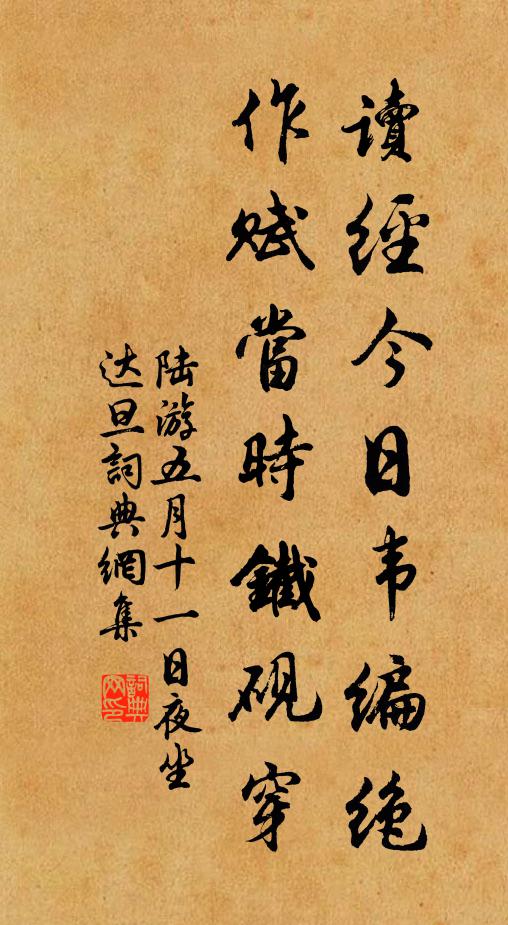 讀經今日韦編絶
作赋當時鐵硯穿
陆游五月十一日夜坐
达旦詞典網集
詞典网印